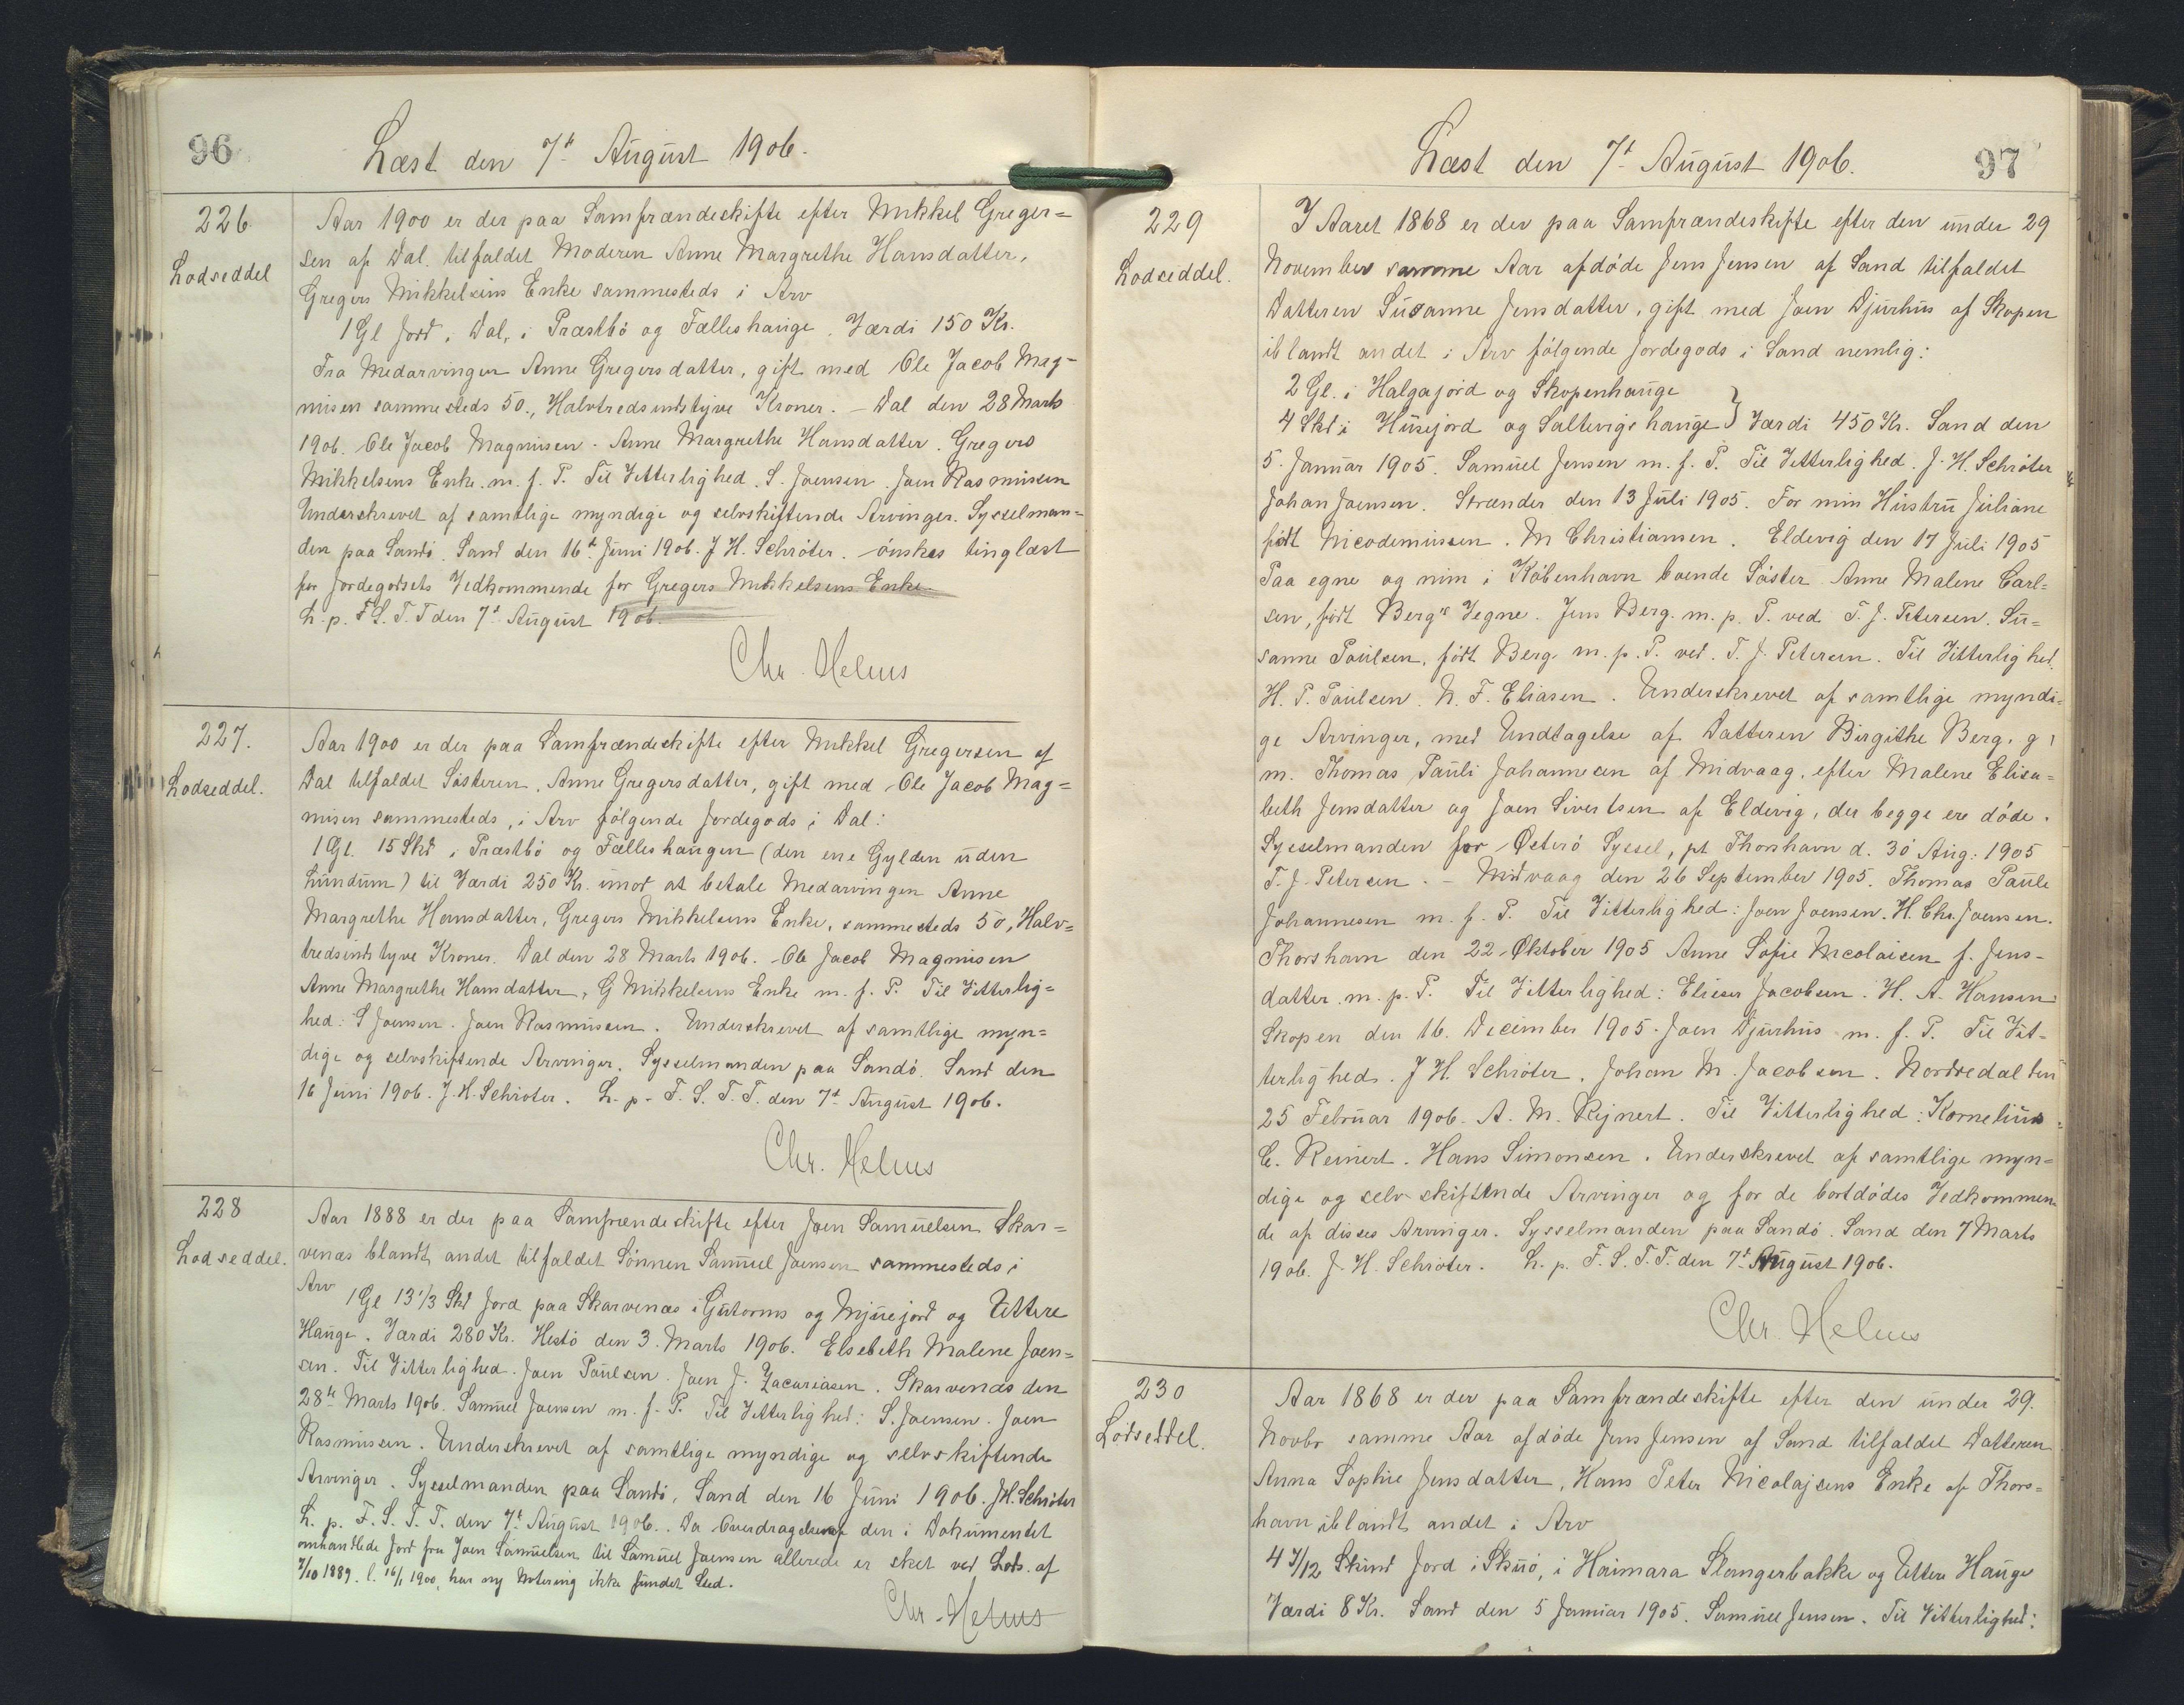 96
Læst den 7de August 1906.
226.
Lodseddel
Aar 1900 er der paa Samfrændeskifte efter Mikkel Greger=
sen af Dal. tilfaldet Moderen Anne Margrethe Hansdatter,
Gregers Mikkelsens Enke sammesteds i Arv
1 Gl Jord i Dal, i Præstbö og Fælleshauge. Værdi 150 Kr.
Fra Medarvingen Anne Gregersdatter, gift med Ole Jacob Mag=
nusen sammesteds 50., Halvtredsindstyve Kroner. – Dal den 28 Marts
1906. Ole Jacob Magnusen. Anne Margrethe Hansdatter. Gregers
Mikkelsens Enke. m. f. P. Til Vitterlighed. S. Joensen. Joen Rasmussen
Underskrevet af samtlige myndige og selvskiftende Arvinger. Sysselman=
den paa Sandö. Sand den 16de Juni 1906. J H. Schröter. – önskes tinglæst
for Jordegodsets Vedkommende for Gregers Mikkelsens Enke.
L. p. F S. T. T den 7de August 1906.
Chr. Helms
227.
Lodseddel.
Aar 1900 er der paa Samfrændeskifte efter Mikkel Gregersen af
Dal tilfaldet Sösteren, Anne Gregersdatter, gift med Ole Jacob Mag=
nusen sammesteds, i Arv fölgende Jordegods i Dal:
1 Gl. 15 Skd i Præstbö og Fælleshaugen (den ene Gylden uden
Lundum) til Værdi 250 Kr. imod at betale Medarvingen Anne
Margrethe Hansdatter, Gregers Mikkelsens Enke, sammesteds 50, Halv=
tredsindstyve Kroner. Dal den 28 Marts 1906. Ole Jacob Magnusen
Anne Margrethe Hansdatter, G Mikkelsens Enke m. f. P. Til Vitterlig=
hed: S Joensen. Joen Rasmussen. Underskrevet af samtlige myn=
dige og selvskiftende Arvinger. Sysselmanden paa Sandö. Sand den
16 Juni 1906. J. H. Schröter. L. p. F. S. T. T. den 7de August 1906.
Chr. Helms
228
Lodseddel.
Aar 1888 er der paa Samfrændeskifte efter Joen Samuelsen Skar=
venæs blandt andet tilfaldet Sönnen Samuel Joensen sammesteds i
Arv
1 Gl 13 1/3 Skd Jord paa Skarvenæs i Gutorms og Mjuejord og Uttere
Hauge. Værdi 280 Kr. Hestö den 3. Marts 1906. Elsebeth Malene Joen=
sen. Til Vitterlighed. Joen Paulsen. Joen J. Zacariasen. Skarvenæs den
28de Marts 1906. Samuel Joensen m. f. P. Til Vitterlighed: S. Joensen. Joen
Rasmussen. Underskrevet af samtlige myndige og selvskiftende
Arvinger. Sysselmanden paa Sandö, Sand den 16 Juni 1906. J H. Schröter
L. p. F. S. T. T. den 7de August 1906. Da Overdragelsen af den i Dokumentet
omhandlede Jord fra Joen Samuelsen til Samuel Joensen allerede er sket ved Lods. af
7/10 1889. l. 16/1 1900, har ny Notering ikke fundet Sted.
Chr. Helms
Læst den 7de August 1906.
97
229
Lodseddel.
I Aaret 1868 er der paa Samfrændeskifte efter den under 29
November samme Aar afdöde Jens Jensen af Sand tilfaldet
Datteren Susanne Jensdatter, gift med Joen Djurhus af Skopen
iblandt andet i Arv fölgende Jordegods i Sand nemlig:
2 Gl. i Halgajord og Skopenhauge
4 Skd i Husejord og Saltevigs hauge } Værdi 450 Kr. Sand den
5. Januar 1905. Samuel Jensen m. f. P. Til Vitterlighed. J. H. Schröter
Johan Joensen. Strænder den 13 Juli 1905. For min Hustru Juliane
födt Nicodemussen. M Christiansen. Eldevig den 17 Juli 1905
Paa egne og min i Köbenhavn boende Söster Anne Malene Carl=
sen, födt Bergs Vegne. Jens Berg. m. p. P. ved T. J. Petersen. Su=
sanne Poulsen, födt Berg m. p. P. ved. T. J. Petersen. Til Vitterlighed.
H. P. Poulsen. N. F. Eliasen. Underskrevet af samtlige myndi=
ge Arvinger, med Undtagelse af Datteren Birgithe Berg, g
m. Thomas Pauli Johannesen af Midvaag, efter Malene Elisa=
beth Jensdatter og Joen Sivertsen af Eldevig, der begge ere döde.
Sysselmanden for Österö Syssel, pt Thorshavn d. 30 Aug: 1905
T. J. Petersen. – Midvaag den 26 September 1905. Thomas Paule
Johannesen m. f. P. Til Vitterlighed: Joen Joensen. H. Chr. Joensen.
Thorshavn den 22 Oktober 1905 Anne Sofie Nicolaisen f. Jens-
datter. m. p. P. Til Vitterlighed: Elieser Jacobsen. H. A. Hansen.
Skopen den 16. December 1905. Joen Djurhus m. f. P. Til Vit-
terlighed. J H. Schröter. Johan M. Jacobsen. Nordredal den
25 Februar 1906. A. M. Rejnert. Til Vitterlighed: Kornelius
C. Reinert. Hans Simonsen. Underskrevet af samtlige myn=
dige og selvskiftende Arvinger og for de bortdödes Vedkommen
de af disses Arvinger. Sysselmanden paa Sandö. Sand den 7 Marts
1906. J. H. Schröter. L. p. F. S. T. T. den 7de August 1906.
Chr. Helms
230
Lodseddel.
Aar 1868 er der paa Samfrændeskifte efter den under 29.
Novbr samme Aar afdöde Jens Jensen af Sand tilfaldet Datteren
Anna Sophie Jensdatter, Hans Peter Nicolajsens Enke af Thors=
havn iblandt andet i Arv
4 7/12 Skind Jord i Skuö, i Heimara Slangerbakke og Uttere Hauge
Værdi 8 Kr. Sand den 5 Januar 1905. Samuel Jensen. Til Vitterlighed: